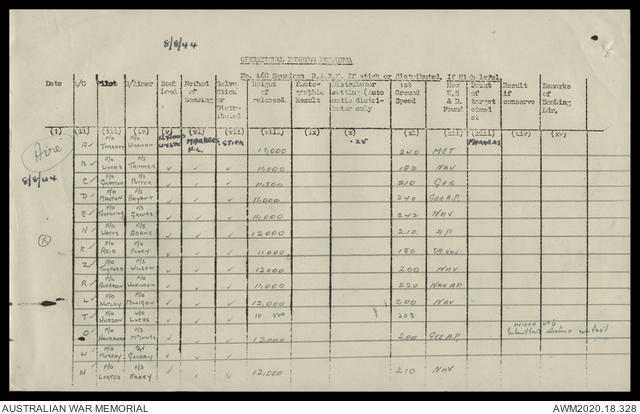 8/8/44
OPERATIONAL BOMBING PROFORMA
No. 460 Squadron R.A.A.F. If stick or distributed. If High level.
Date A/C Pilot B/Aimer Bomb Load Method of Bombing Salvo Stick or Distributed Height of release. Photographic Result Distributor Setting (Automatic distributor only I.A.S. Ground Speed How W/V & D. Found Point of target aimed at Result if conserve Remarks of Bombing Ldr.
(i) (ii) (iii) (iv) (v) (vi) (vii) (viii) (ix) (x) (xi) (xii) (xiii) (xiv) (xv)
Aire
8/8/44
A F/O F/S MARKERS H.L. STICK 11,000 .25 240 MET MARKERS
B F/O WOODS F/S TRIMMER 11,000 180 NAV
C F/O GRATTON F/S POTTER 11,500 210 GEE
D P/O MELTON F/S BRYANT 11,000 240 GEE A.P.
E F/O F/S 11,000 242 NAV
H F/O WATTS F/S ADAMS 12,000 210 A.P.
K F/O REID F/S 11,000 180 DR NAV
Z F/O TWYFORD F/S WILSON 12,000 200 NAV
R F/O ANDERSON WILKINSON 11,000 220 NAV AP
L F/O NUTLEY F/S MILLIGAN 12,000 200 NAV
T F/O HUDSON W/O LUCAS 10 500 203
O F/O F/S 12,000 200 GEE A.P.
W F/O MURRAY Sgt
N P/O LESTER F/S 12,000 210 NAV
AUSTRALIAN WAR MEMORIAL
AWM2020.18.328